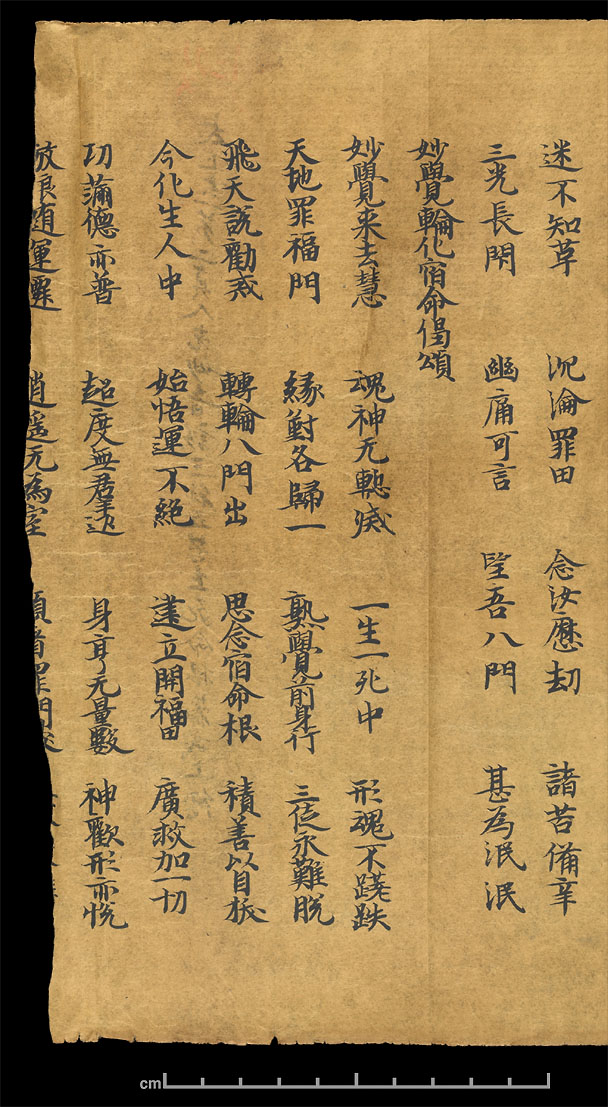 迷不知草 沉淪罪田 念汝歷劫 諸苦備辛
三光長閇 幽痛可言 望吾八門 甚為泯泯
妙覺輪化宿命偈頌
妙覺來去慧 魂神无蹔滅 一生一死中 形魂不蹺跌
天地罪福門 緣對各歸一 熟覺前身行 三塗永難脫
飛天說勸戒 轉輪八門出 思念宿命根 積善以自拔
今化生人中 始悟運不絕 建立開福田 廣救加一切
功滿德亦普 超度無君達 身享无量數 神歡形亦悅
放浪隨運 逍遙无為室 顧 罪門